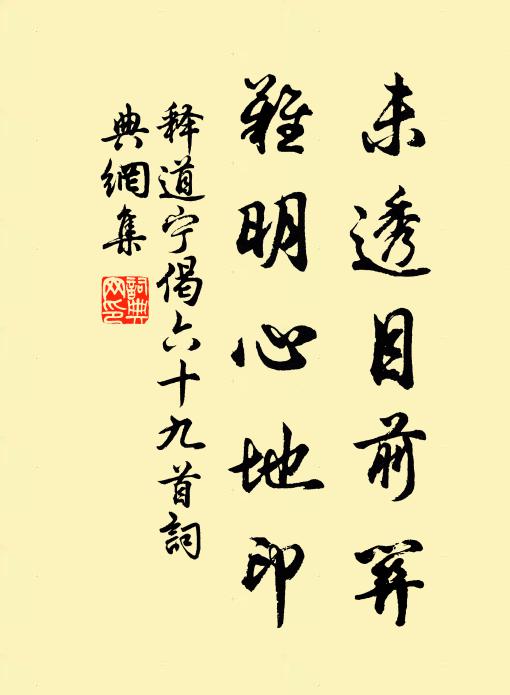 未透目前關
難明心地印
释道宁偈六十九首詞
典網集
詞典
网印